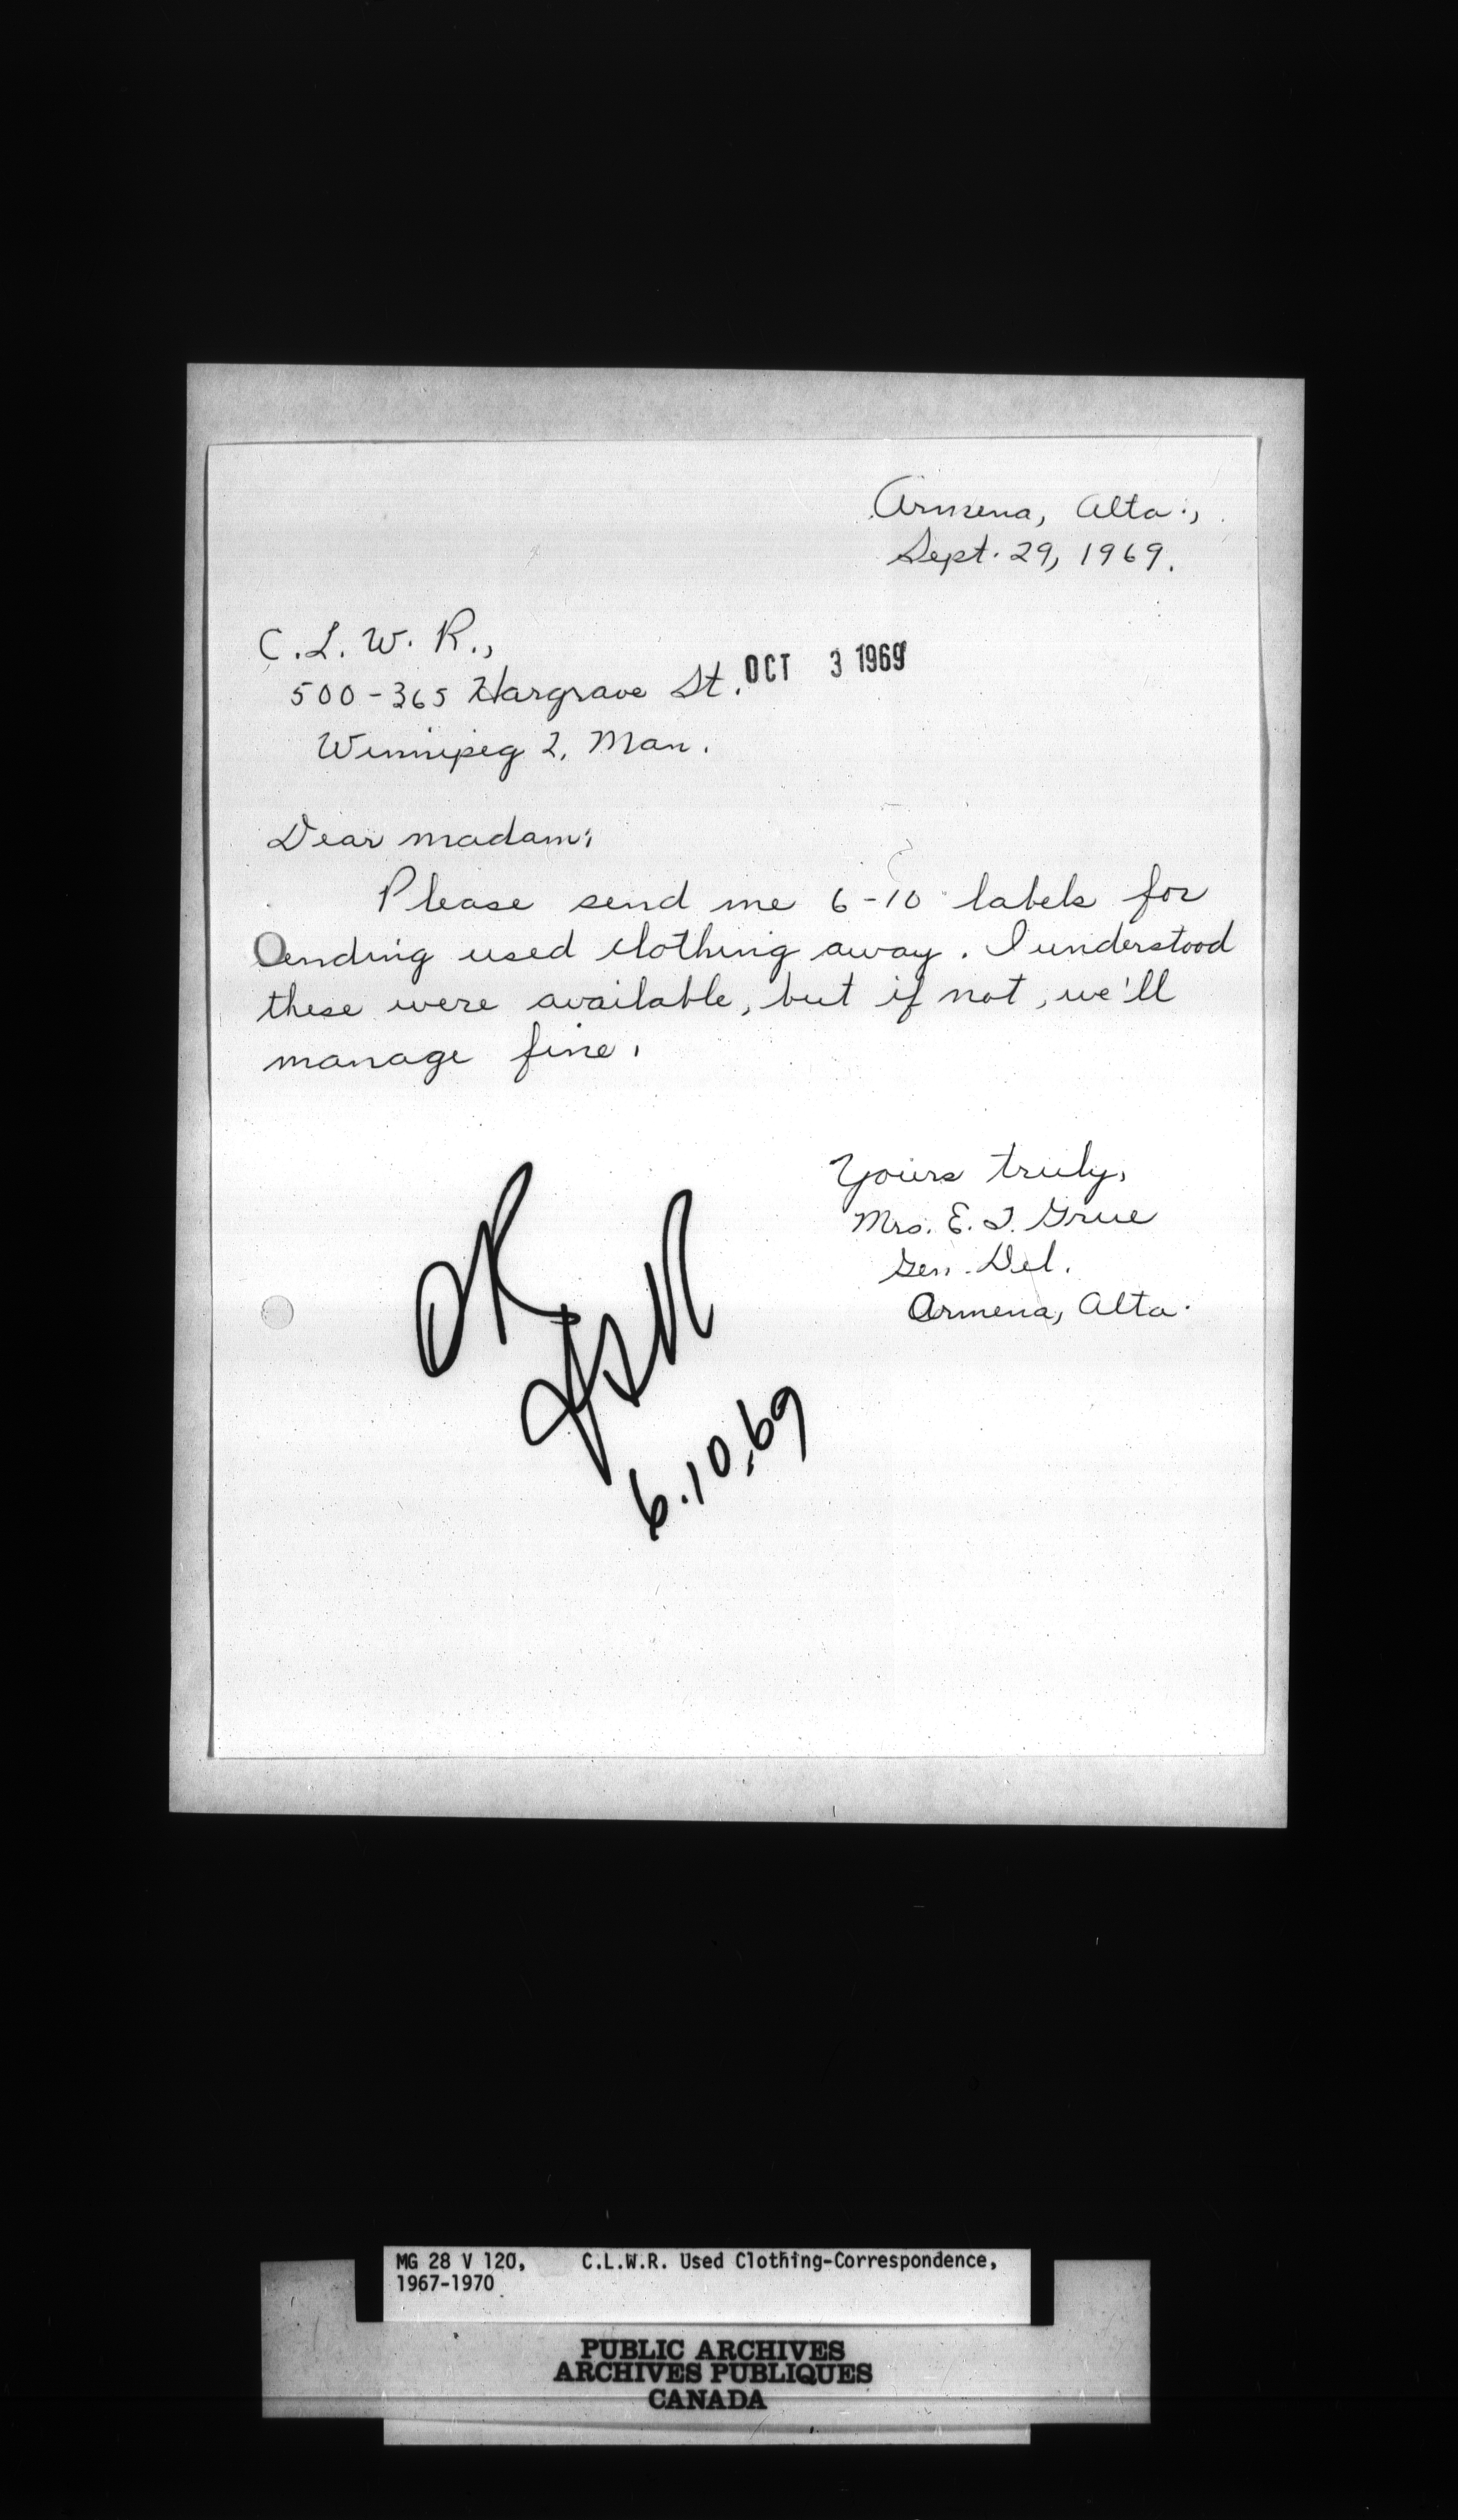 Armena, Alta.,
Sept. 29, 1969.
C.L.W.R.,
OCT 3 1969
500-365 Hargrave St.
Winnipeg 2, Man.
Dear madam:
Please send me 6-10 labels for
sending used clothing away. I understood
these were available, but if not, we'll
manage fine.
Yours truly,
Mrs. E. I. Grue
Gen. Del.
Armena, Alta.
OK
6.10.69
MG 28 V 120, C.L.W.R. Used Clothing-Correspondence,
1967-1970
PUBLIC ARCHIVES
ARCHIVES PUBLIQUES
CANADA